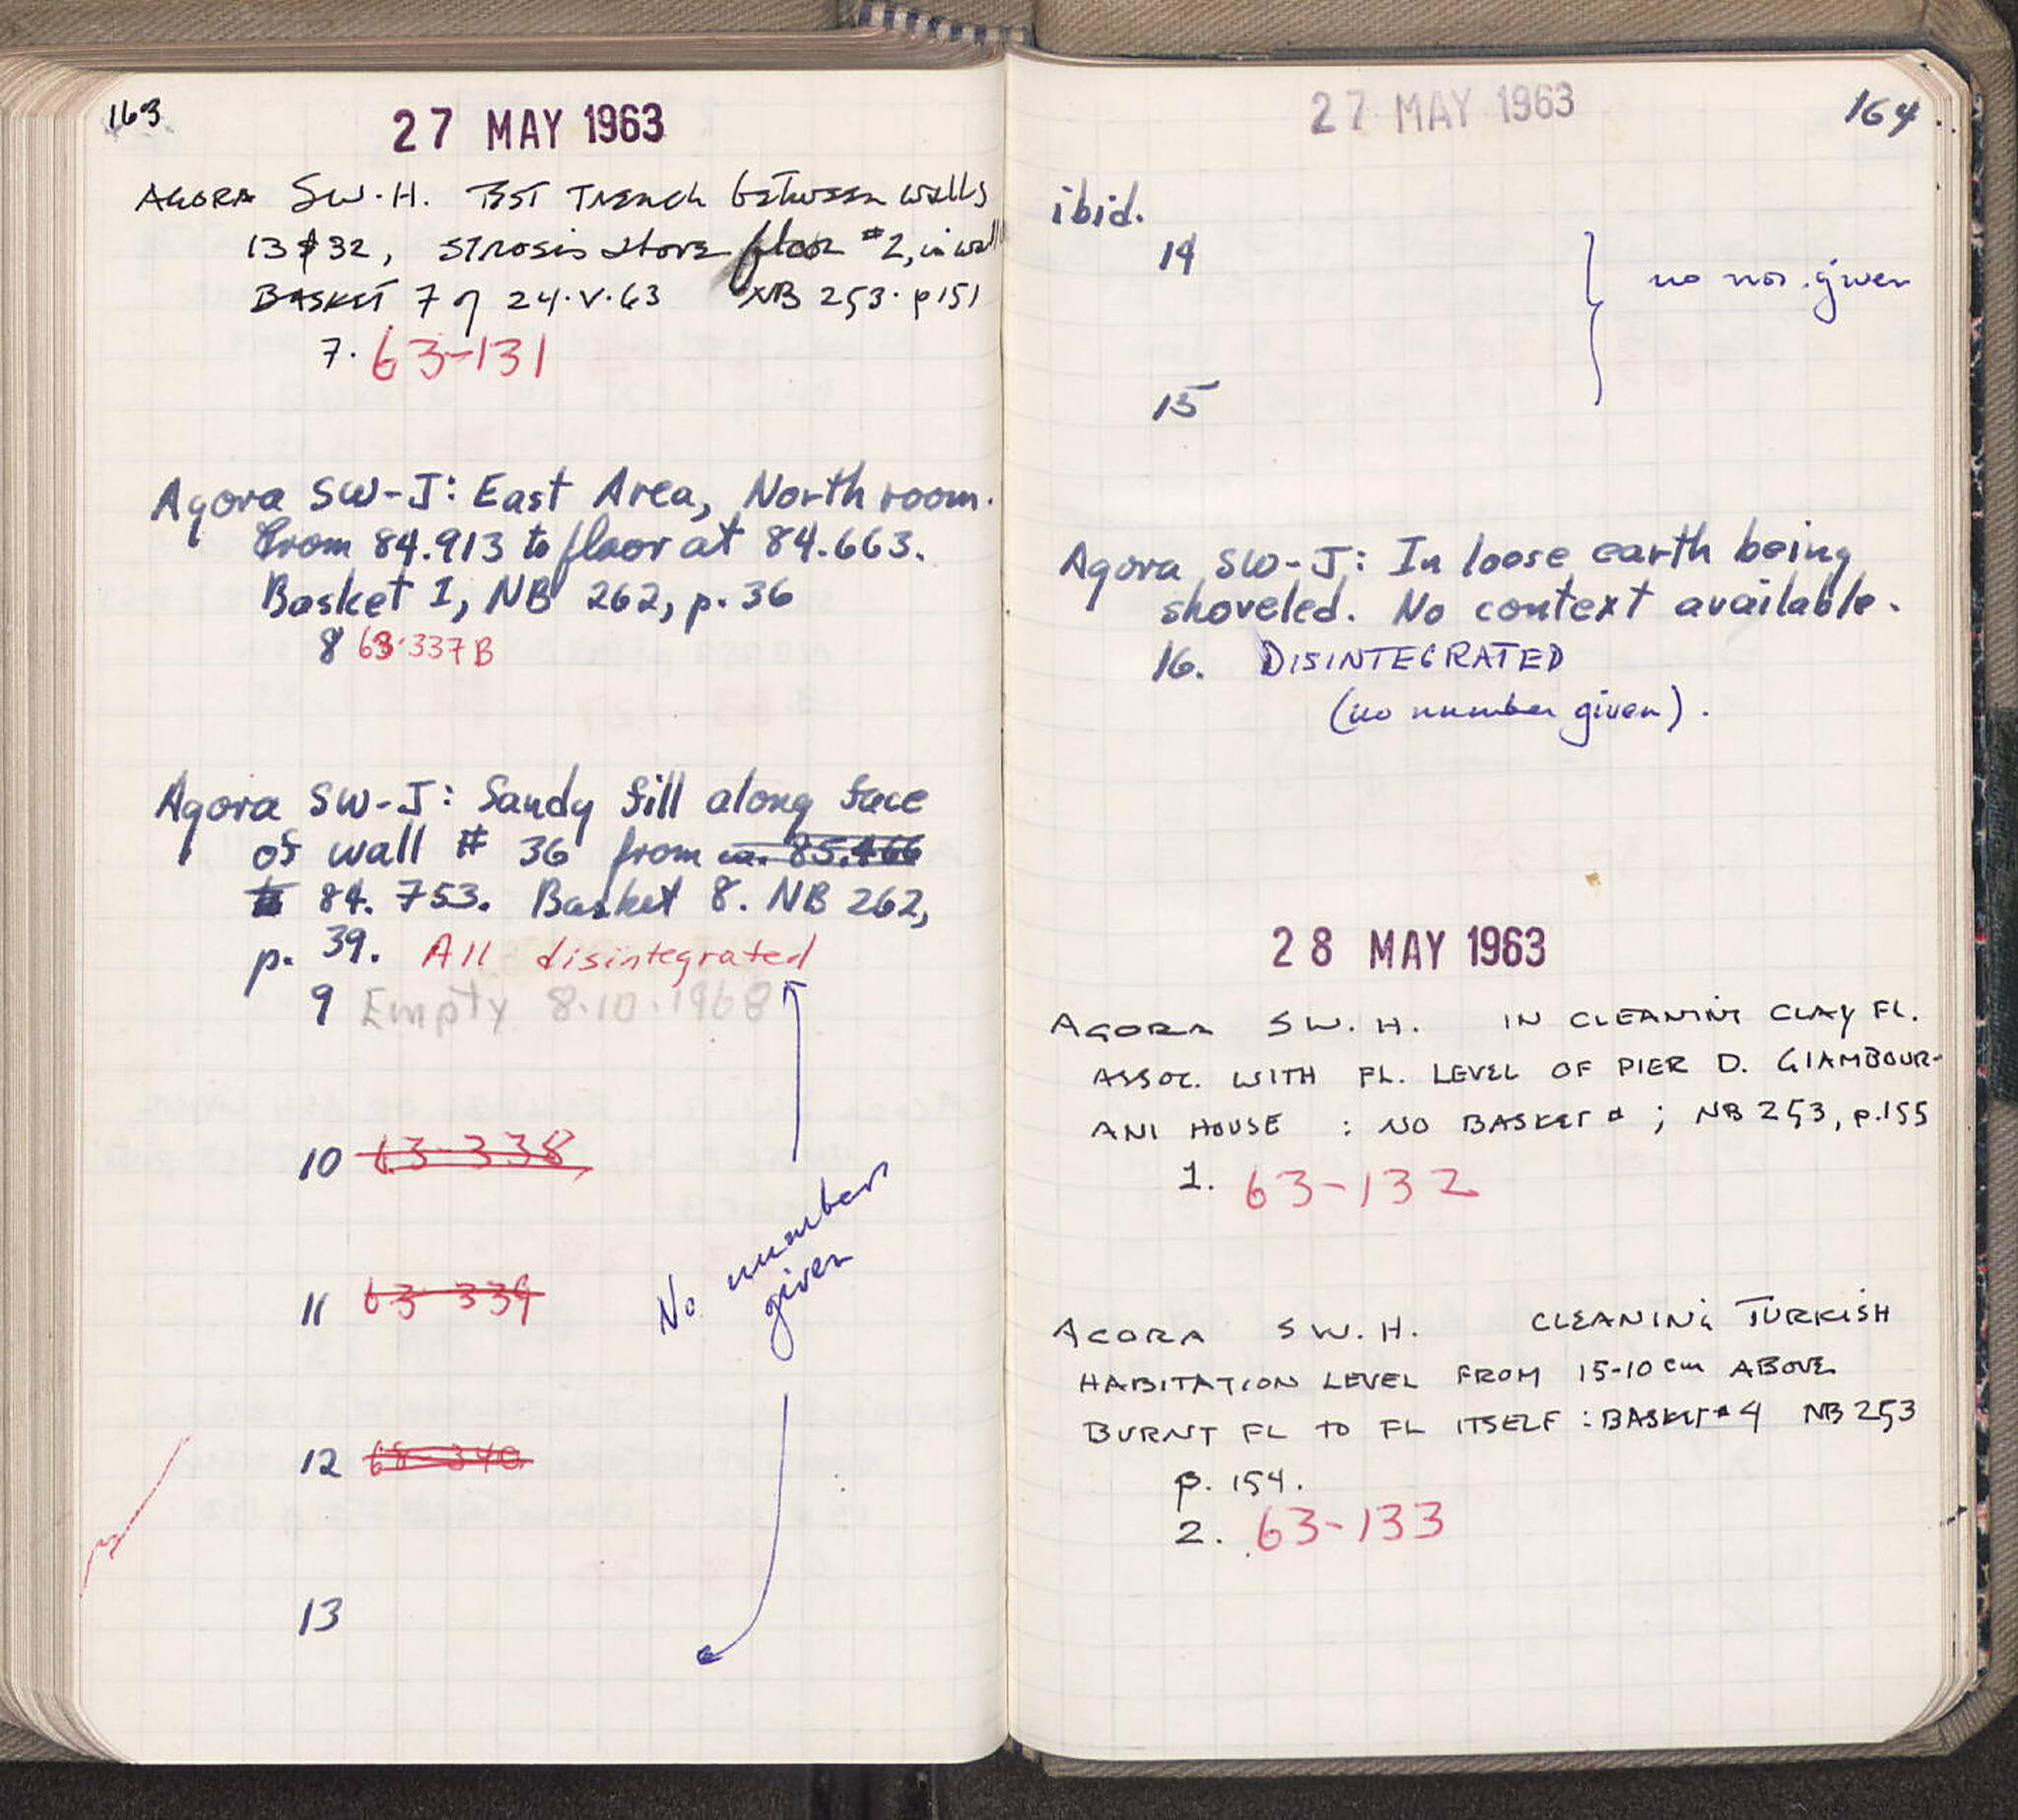 163
27 MAY 1963
AGORA SW.H. TEST Trench between walls
13 & 32, strosis above floor #2, in wall
BASKET 7 of 24.V.63 NB 253. p151
7. 63-131
Agora SW-J: East Area, North room.
From 84.913 to floor at 84.663.
Basket I, NB 262, p. 36
8 63.337B
Agora SW-J: Sandy fill along face
of wall # 36 from ca. 85.466
to 84.753. Basket 8. NB 262,
p. 39. All disintegrated
9 Empty 8.10.1968
10 63-338
11 63-339
12 63-340
No numbers
given
13
27 MAY 1963
164
ibid.
14
no nos. given
15
Agora SW-J: In loose earth being
shoveled. No context available.
16. DISINTEGRATED
(no number given).
28 MAY 1963
AGORA SW.H. IN CLEANING CLAY FL.
ASSOC. WITH FL. LEVEL OF PIER D. GIAMBOUR-
ANI HOUSE : NO BASKET # ; NB 253, p.155
1. 63-132
AGORA SW.H. CLEANING TURKISH
HABITATION LEVEL FROM 15-10 cm ABOVE
BURNT FL TO FL ITSELF : BASKET # 4 NB 253
p. 154.
2. 63-133